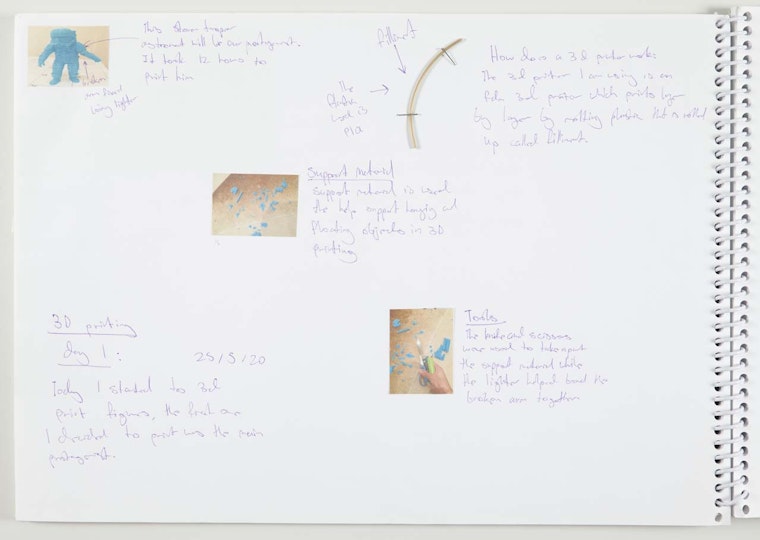 This storm trooper
astronaut will be our protagonist.
It took 12 hours to
print him
arm fixed
using lighter
filliment
The
used is
pla
How does a 3d printer work:
The 3d printer I am using is an
fdm 3d printer which prints layer
by layer by melting plastic that is rolled
up called filliment
Support material
support material is used
the help support hanging and
floating objects in 3D
printing
3D printing
day 1: 25/5/20
Today I started to 3d
print figures, the first one
I decided to print was the main
protagonist.
Tools
The and scissors
were used to take apart
the support material while
the lighter helped bond the
broken arm together